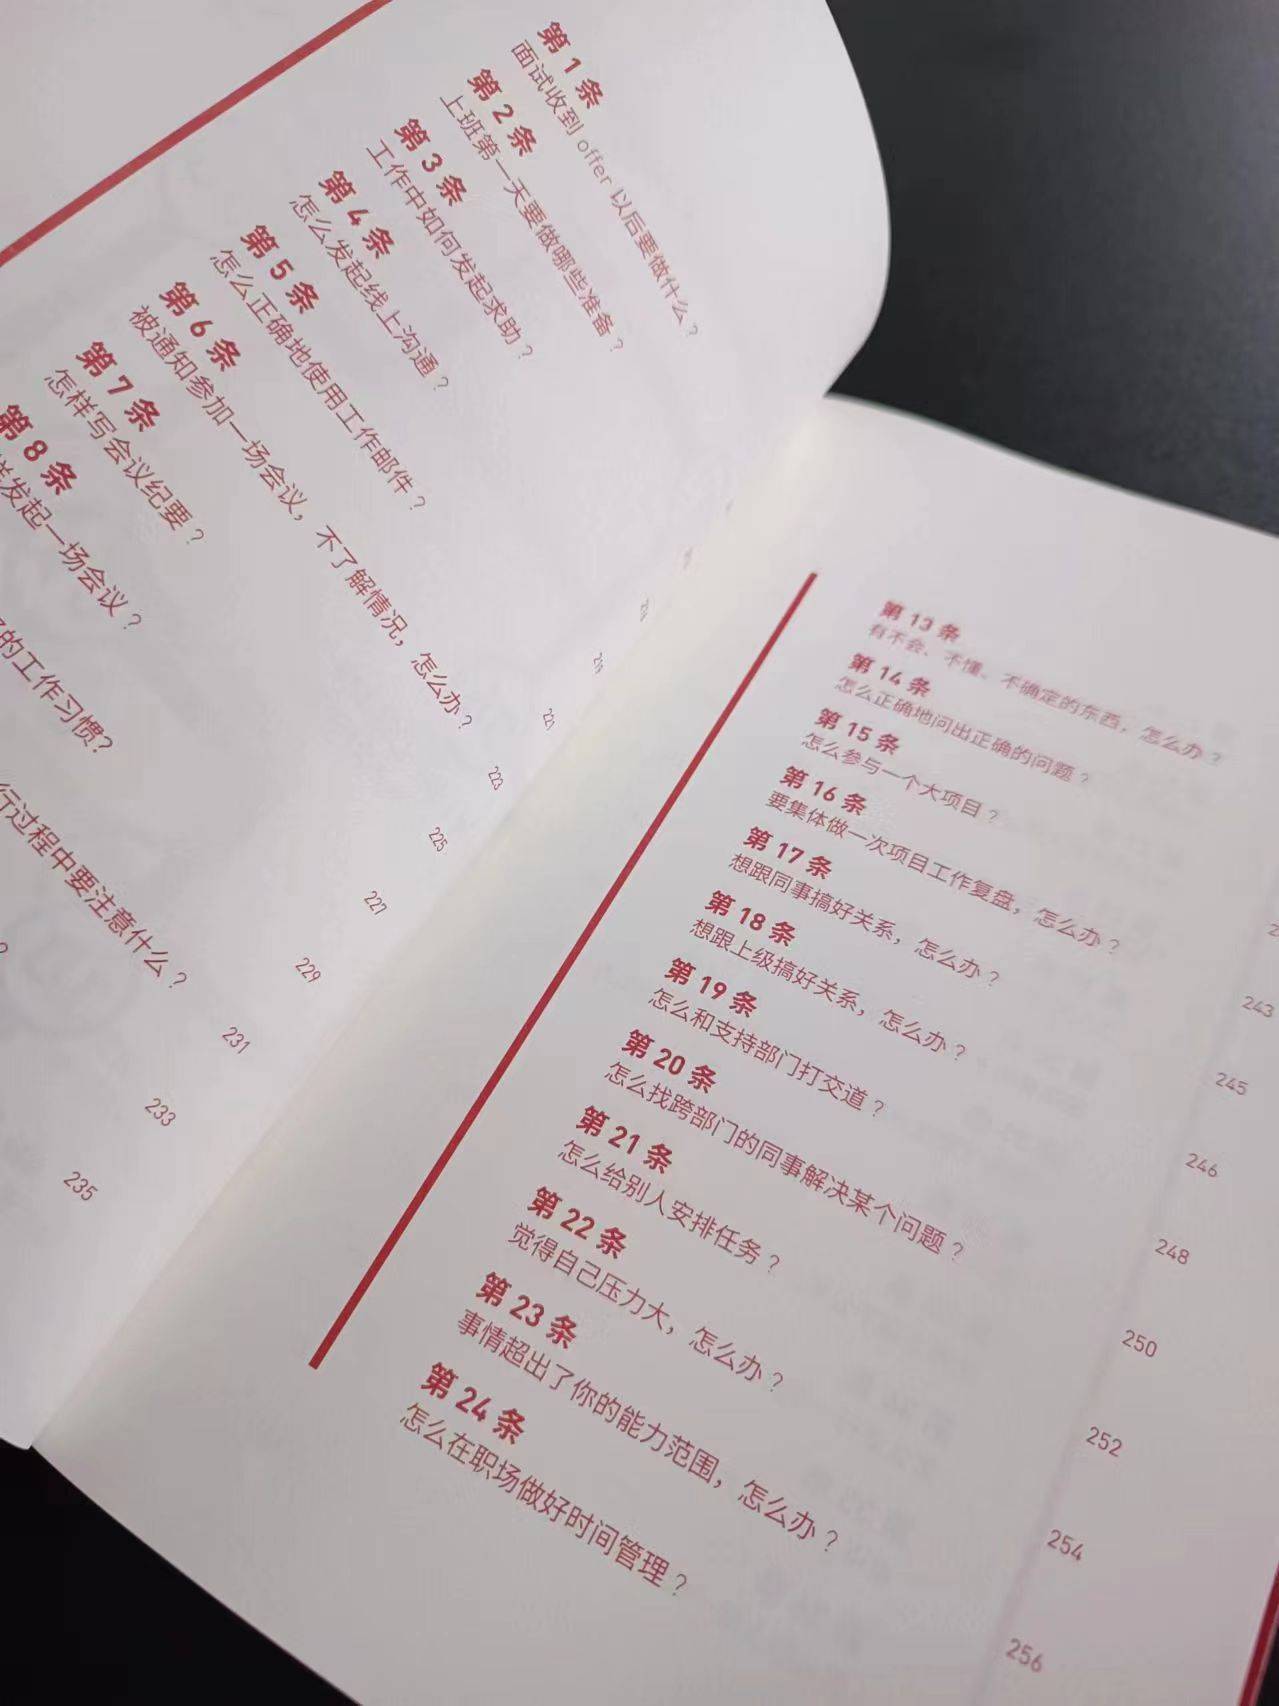 第 1 条
面试收到 offer 以后要做什么？
第 2 条
上班第一天要做哪些准备？
第 3 条
工作中如何发起求助？
第 4 条
怎么发起线上沟通？
第 5 条
怎么正确地使用工作邮件？
第 6 条
被通知参加一场会议，不了解情况，怎么办？
第 7 条
怎样写会议纪要？
第 8 条
样发起一场会议？
的工作习惯?
行过程中要注意什么？
？
219
221
223
225
227
229
231
233
235
第 13 条
有不会、不懂、不确定的东西，怎么办？
第 14 条
怎么正确地问出正确的问题？
第 15 条
怎么参与一个大项目？
第 16 条
要集体做一次项目工作复盘，怎么办？
第 17 条
想跟同事搞好关系，怎么办？
第 18 条
想跟上级搞好关系，怎么办？
第 19 条
怎么和支持部门打交道？
第 20 条
怎么找跨部门的同事解决某个问题？
第 21 条
怎么给别人安排任务？
第 22 条
觉得自己压力大，怎么办？
第 23 条
事情超出了你的能力范围，怎么办？
第 24 条
怎么在职场做好时间管理？
243
245
246
248
250
252
254
256